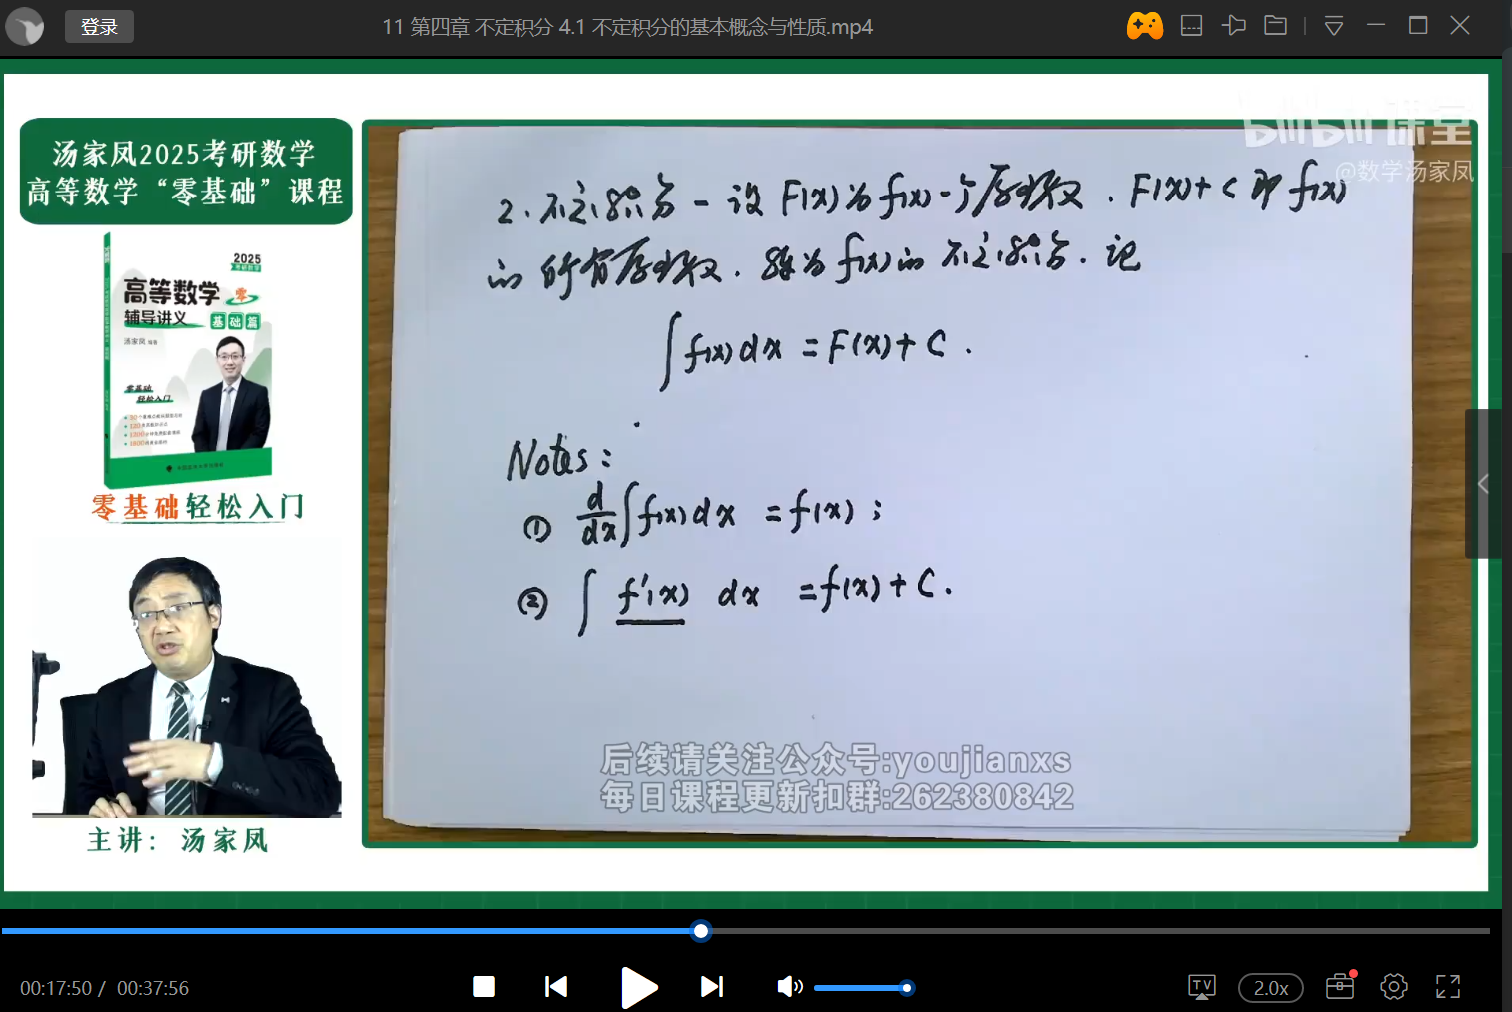 登录
11 第四章 不定积分 4.1 不定积分的基本概念与性质.mp4
汤家凤2025考研数学
高等数学“零基础”课程
2025
考研数学
高等数学 零
辅导讲义 基础篇
汤家凤 编著
零基础
轻松入门
零基础轻松入门
主讲：汤家凤
bilibili 课堂
@数学汤家凤
2. 不定积分 - 设 F(x) 为 f(x) 一个原函数. F(x)+C 即 f(x)
的所有原函数. 称为 f(x) 的不定积分. 记
∫ f(x) dx = F(x) + C .
Notes :
① d/dx ∫ f(x) dx = f(x) ;
② ∫ f'(x) dx = f(x) + C .
后续请关注公众号:youjianxs
每日课程更新扣群:262380842
00:17:50 / 00:37:56
TV
2.0x